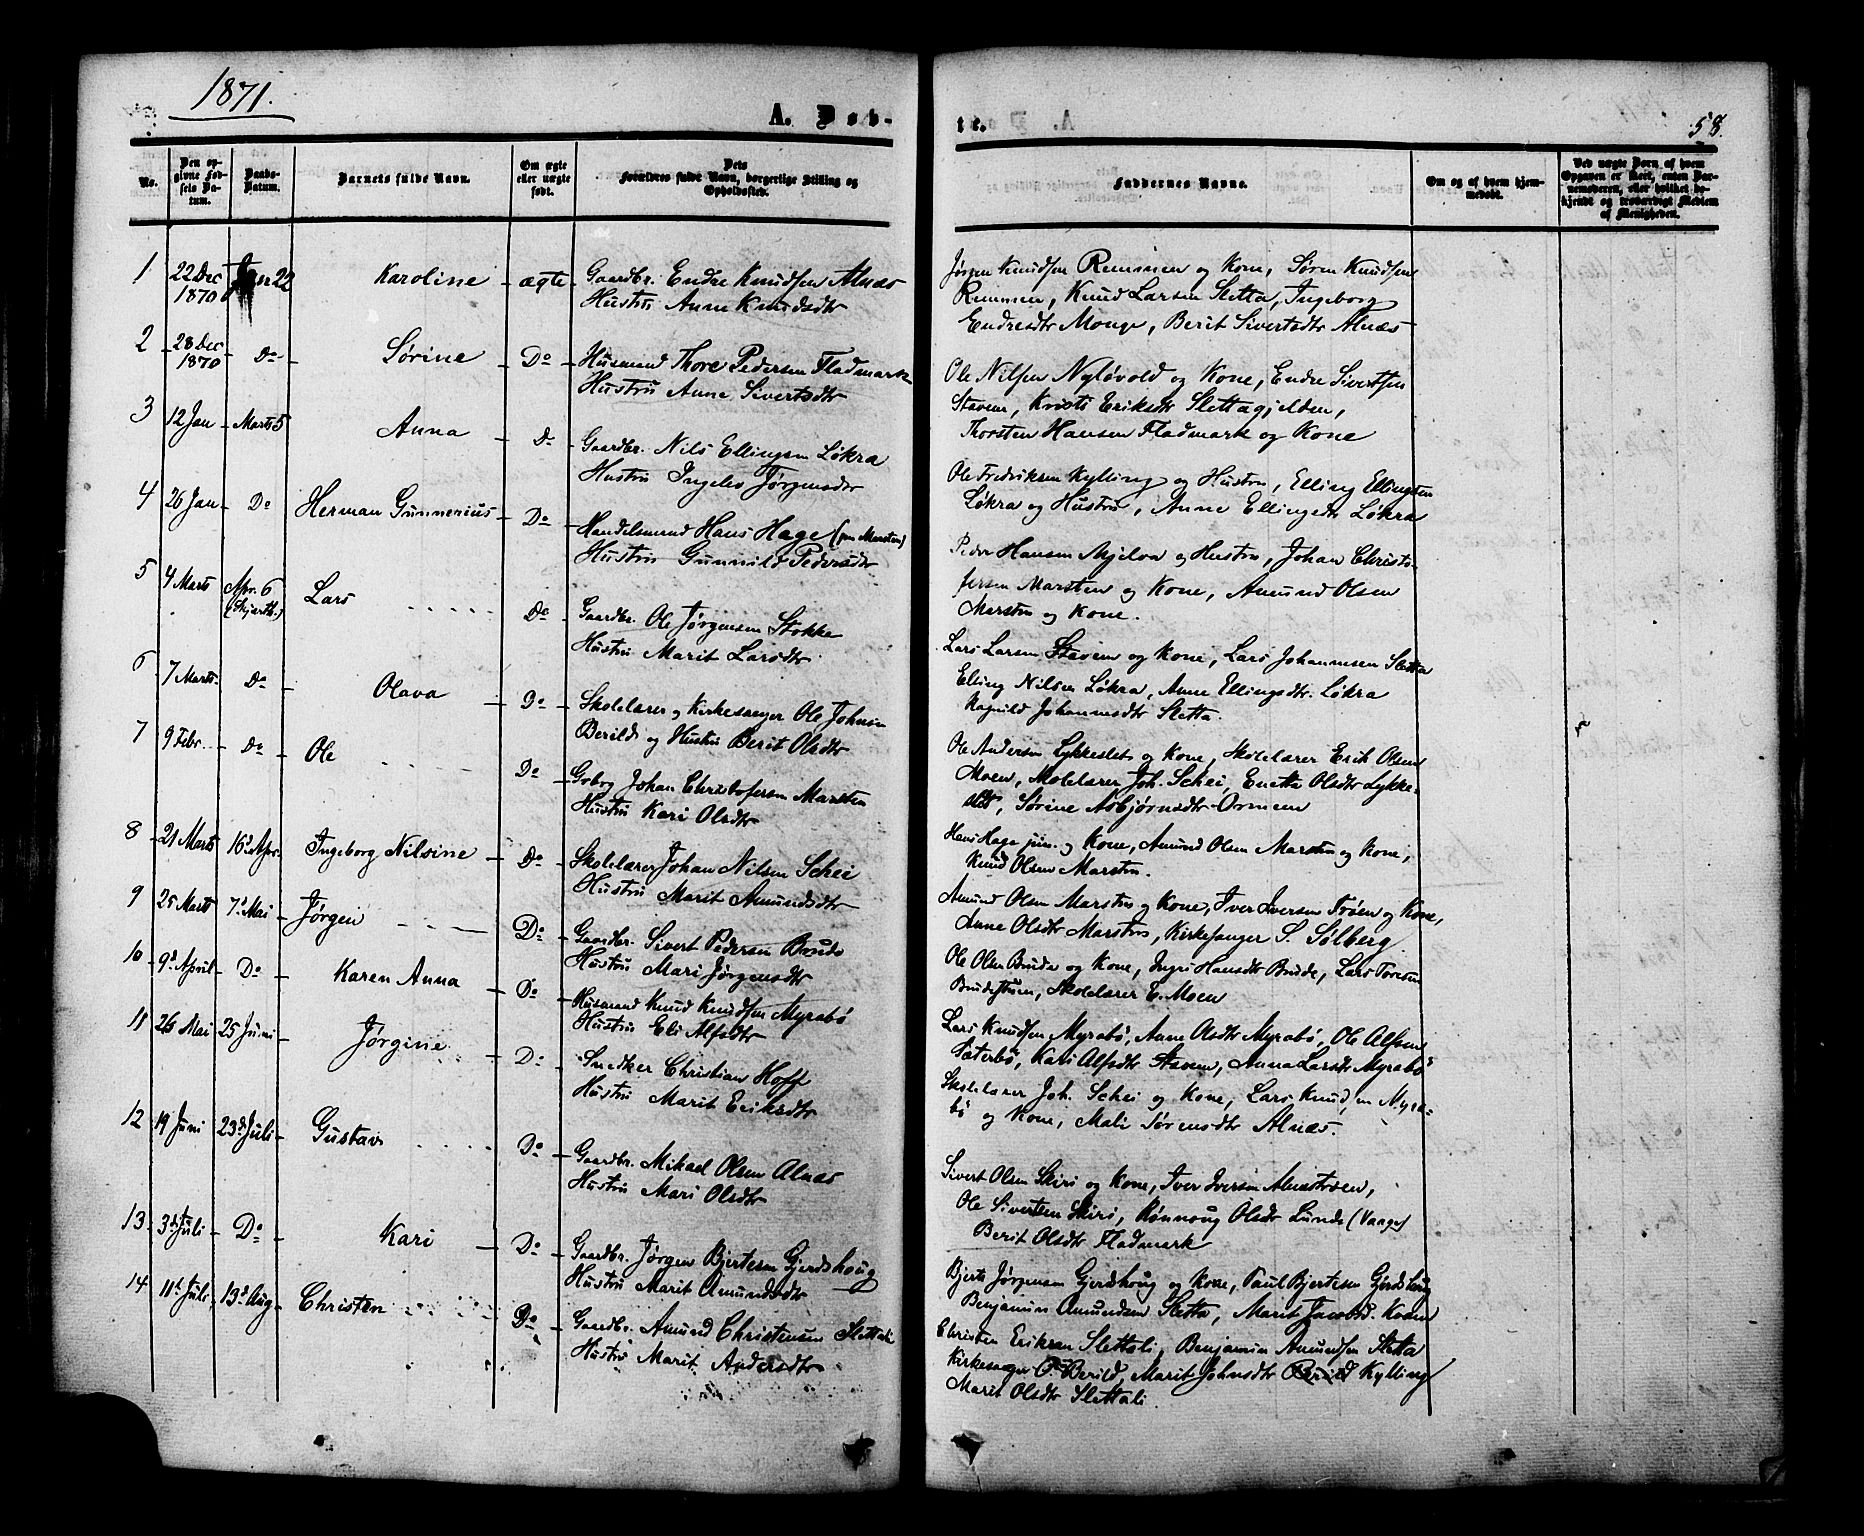 1871.
A. Døb-
No.
Den op-
givne Fød-
sels Da-
tum.
Daabs-
Datum.
Barnets fulde Navn.
Om ægte
eller uægte
født.
Dets
Forældres fulde Navn, borgerlige Stilling og
Opholdssted.
1 22 Dec 1870 Jan 22 Karoline - ægte - Gaardbr. Endre Knudsen Alnæs
Hustru Anne Knudsdtr
2 28 Dec 1870 - Do - Sørine - Do - Husmand Thore Pedersen Fladmark
Hustru Anne Sivertsdtr
3 12 Jan - Marts 5 Anna - Do - Gaardbr. Nils Ellingsen Løkra
Hustru Ingelev Jørgensdtr
4 26 Jan - Do Herman Gunnerius - Do - Handelsmand Hans Hage (jun Marsten)
Hustru Gunnild Pedersdtr
5 4 Marts Apr. 6 (Skjærth.) Lars Do Gaardbr. Ole Jørgensen Stokke
Hustru Marit Larsdtr
6 7 Marts - Do - Olava - Do - Skolelærer og Kirkesanger Ole Johnsen
Berild og Hustru Berit Olsdtr
7 9 Febr. - Do - Ole Do - Gbrg Johan Christofersen Marsten
Hustru Kari Olsdtr
8 21 Marts 16d Apr. Ingeborg Nilsine - Do - Skolelærer Johan Nilsen Schei
Hustru Marit Amundsdtr
9 25 Marts 7d Mai - Jørgen Do - Gaardbr. Sivert Pedersen Brude
Hustru Mari Jørgensdtr
10 9d April - Do - Karen Anna - Do - Husmand Knud Knudsen Myrabø
Hustru Eli Alfsdtr
11 26 Mai 25 Juni - Jørgine - Do - Snedker Christian Hoff
Hustru Marit Eriksdtr
12 19 Juni 23d Juli - Gustav Do - Gaardbr. Mikael Olsen Alnæs
Hustru Mari Olsdtr
13. 3d Juli - Do - Kari - Do - Gaardbr. Jørgen Bjertesen Gjerdshoug
Hustru Marit Amundsdtr
14 11t Juli 13d Aug - Christen Do - Gaardbr. Amund Christensen Slettali
Hustru Marit Andersdtr
te.
58.
Faddernes Navne.
Om og af hvem hjem-
medøbt.
Ved uægte Børn af hvem
Opgaven er skeet, enten Bar-
nemoderen, eller hvilket be-
kjendt og troværdigt Medlem
af Menigheden.
Jørgen Knudsen Remmen og Kone, Søren Knudsen
Remmen, Knud Larsen Sletta, Ingeborg
Endresdtr Monge, Berit Sivertsdtr Alnæs
Ole Nilsen Nyløvold og Kone, Endre Sivertsen
Stavem, Kristi Eriksdtr Slettagjelden,
Thorsten Hansen Fladmark og Kone
Ole Fredriksen Kylling og Hustru, Elling Ellingsen
Løkra og Hustru, Anne Ellingsdtr Løkra
Peder Hansen Mjelva og Hustru, Johan Christo-
fersen Marsten og Kone, Amund Olsen
Marsten og Kone.
Lars Larsen Stavem og Kone, Lars Johannesen Sletta
Elling Nilsen Løkra, Anne Ellingsdtr. Løkra
Ragnild Johannesdtr Sletta.
Ole Andersen Lykkeslet og Kone, Skolelærer Erik Olsen
Moen, Skolelærer Joh. Schei, Enetta Olsdtr Lykke-
slet, Sørine Asbjørnsdtr Ormeen
Hans Hage jun. og Kone, Amund Olsen Marsten og Kone,
Knud Olsen Marsten.
Amund Olsen Marsten og Kone, Iver Iversen Trøen og Kone,
Anne Olsdtr Marsten, Kirkesanger S. Sølberg.
Ole Olsen Brude og Kone, Ingri Hansdtr Brude, Lars Toresen
Brudestuen, Skolelærer E. Moen
Lars Knudsen Myrabø, Anne Olsdtr Myrabø, Ole Alfsen
Sæterbø, Kari Alfsdtr Stavem, Anna Larsdtr Myrabø
Skolelærer Joh. Schei og Kone, Lars Knudsen Myra-
bø og Kone, Mali Sørensdtr Alnæs.
Sivert Olsen Skiri og Kone, Iver Iversen Alnæstrøen,
Ole Sivertsen Skiri, Rønnoug Olsdtr Lunde (Vaage)
Berit Olsdtr Fladmark
Bjerte Jørgensen Gjerdshoug og Kone, Paul Bjertesen Gjerdshoug
Benjamin Amundsen Sletta, Marit Jacobsd. Kvam
Christen Eriksen Slettali, Benjamin Amundsen Sletta
Kirkesanger O. Berild, Marit Johnsdtr Berild Kylling
Marit Olsdtr Slettali.